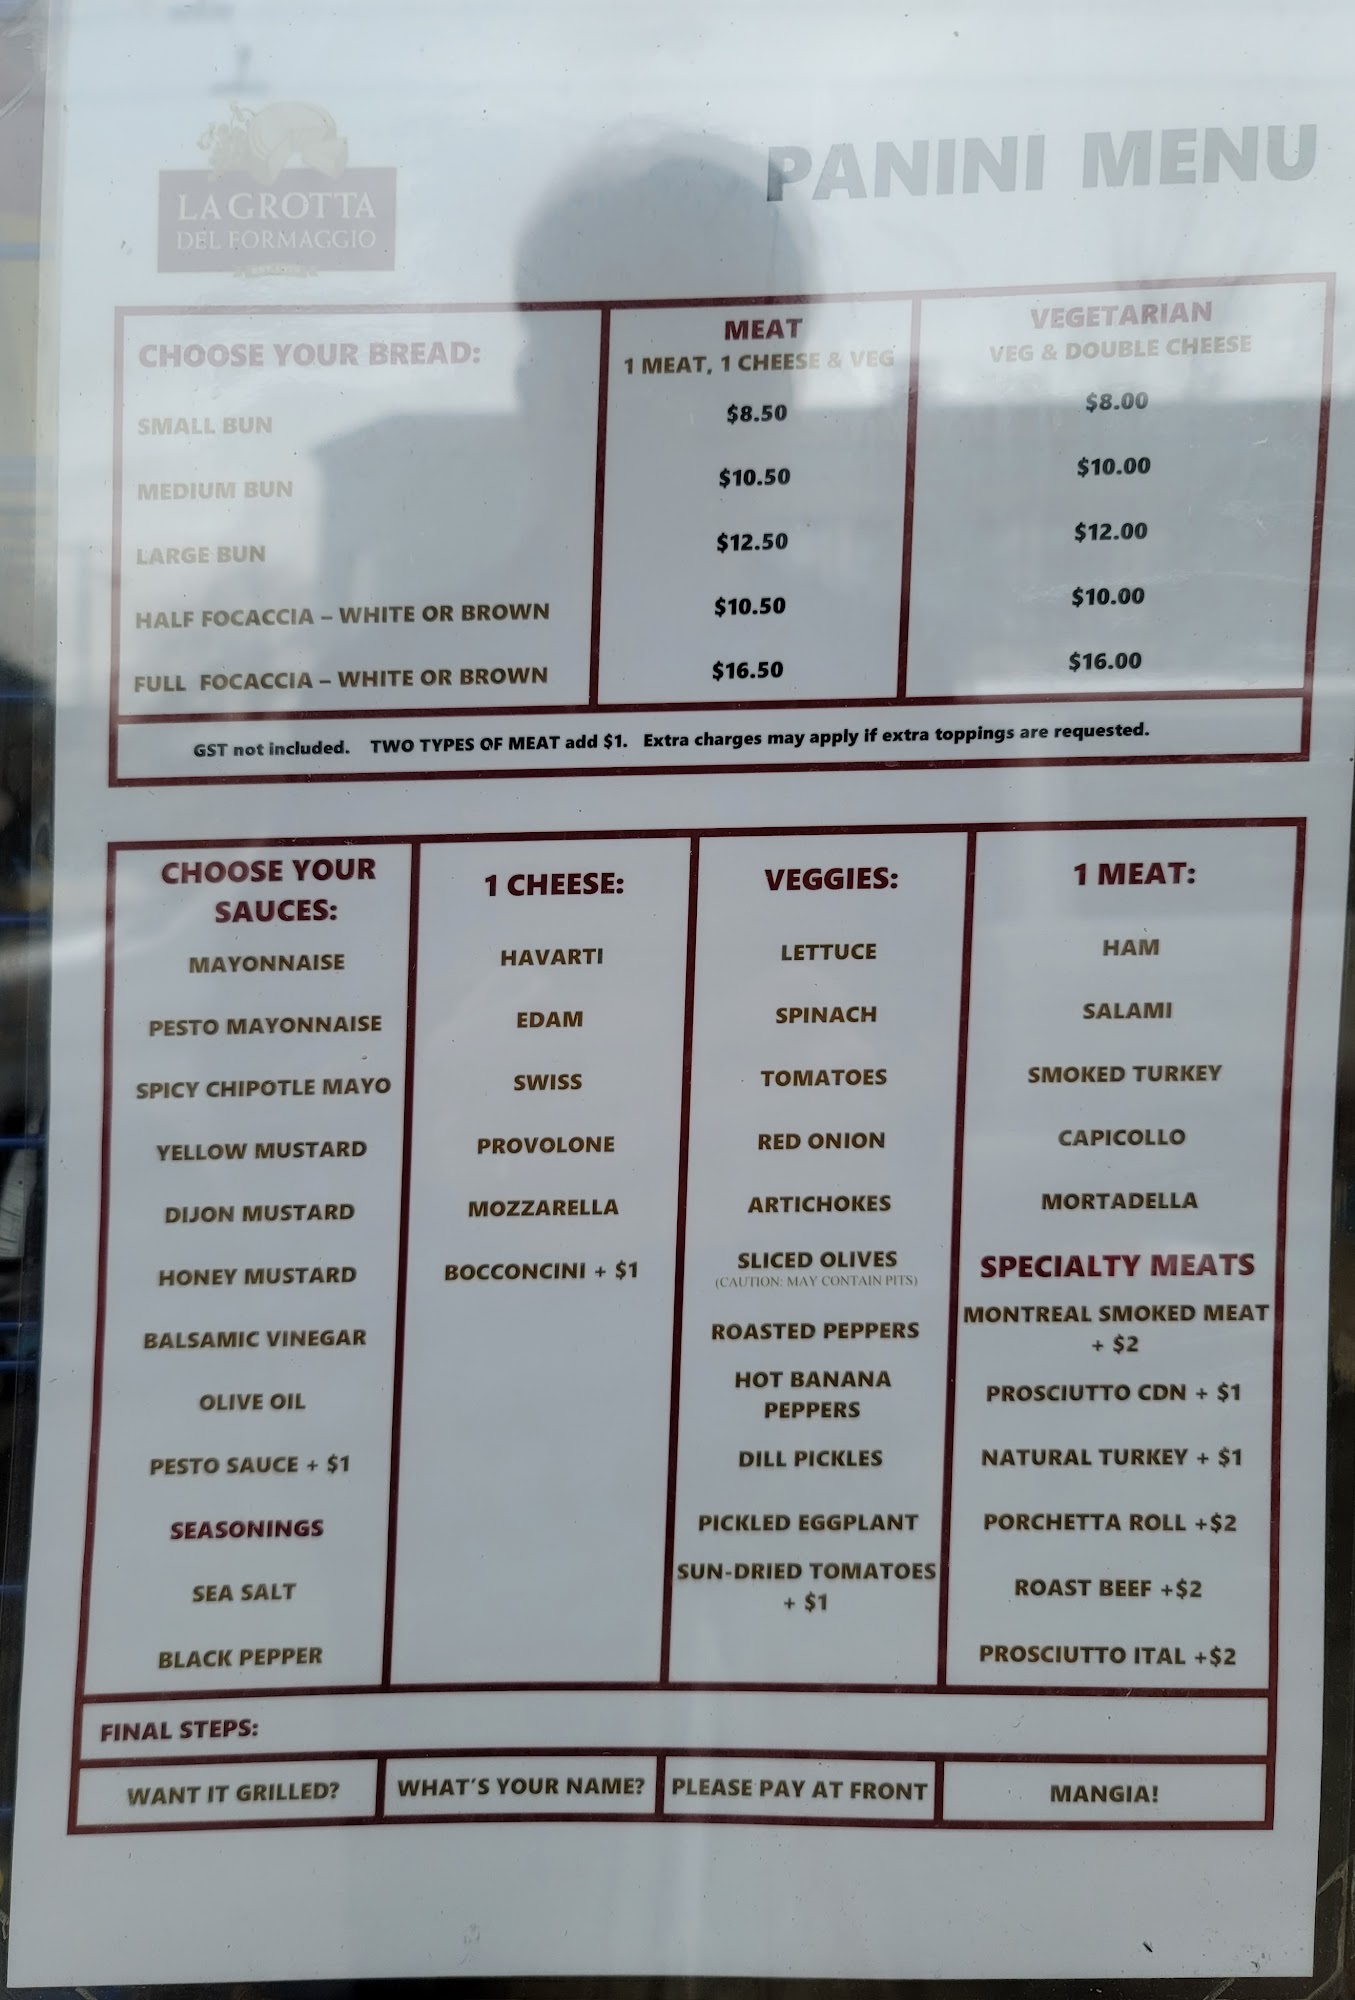 LA GROTTA
DEL FORMAGGIO
PANINI MENU
CHOOSE YOUR BREAD:
MEAT
1 MEAT, 1 CHEESE & VEG
VEGETARIAN
VEG & DOUBLE CHEESE
SMALL BUN $8.50 $8.00
MEDIUM BUN $10.50 $10.00
LARGE BUN $12.50 $12.00
HALF FOCACCIA – WHITE OR BROWN $10.50 $10.00
FULL FOCACCIA – WHITE OR BROWN $16.50 $16.00
GST not included. TWO TYPES OF MEAT add $1. Extra charges may apply if extra toppings are requested.
CHOOSE YOUR
SAUCES:
MAYONNAISE
PESTO MAYONNAISE
SPICY CHIPOTLE MAYO
YELLOW MUSTARD
DIJON MUSTARD
HONEY MUSTARD
BALSAMIC VINEGAR
OLIVE OIL
PESTO SAUCE + $1
SEASONINGS
SEA SALT
BLACK PEPPER
1 CHEESE:
HAVARTI
EDAM
SWISS
PROVOLONE
MOZZARELLA
BOCCONCINI + $1
VEGGIES:
LETTUCE
SPINACH
TOMATOES
RED ONION
ARTICHOKES
SLICED OLIVES
(CAUTION: MAY CONTAIN PITS)
ROASTED PEPPERS
HOT BANANA
PEPPERS
DILL PICKLES
PICKLED EGGPLANT
SUN-DRIED TOMATOES
+ $1
1 MEAT:
HAM
SALAMI
SMOKED TURKEY
CAPICOLLO
MORTADELLA
SPECIALTY MEATS
MONTREAL SMOKED MEAT
+ $2
PROSCIUTTO CDN + $1
NATURAL TURKEY + $1
PORCHETTA ROLL +$2
ROAST BEEF +$2
PROSCIUTTO ITAL +$2
FINAL STEPS:
WANT IT GRILLED?
WHAT'S YOUR NAME?
PLEASE PAY AT FRONT
MANGIA!